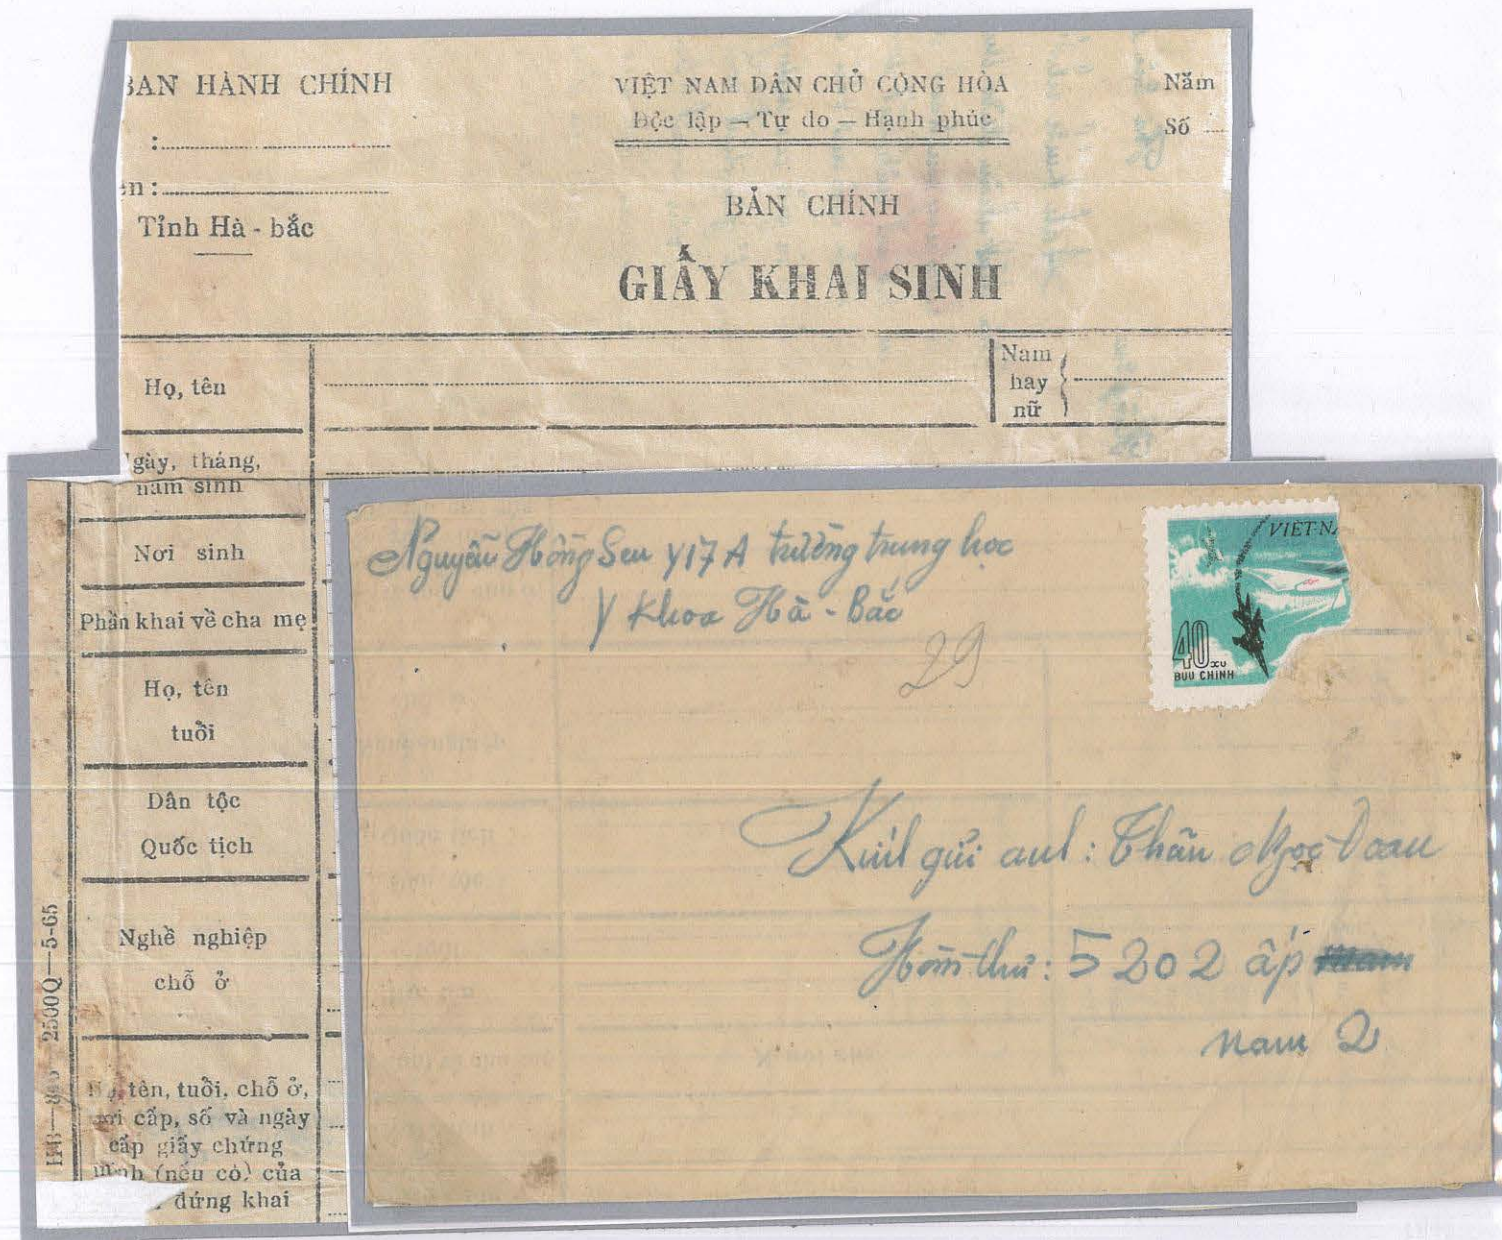 BAN HÀNH CHÍNH
VIỆT NAM DÂN CHỦ CỘNG HÒA
Năm
:
Độc lập — Tự do — Hạnh phúc
Số
ện :
Tỉnh Hà - bắc
BẢN CHÍNH
GIẤY KHAI SINH
Họ, tên
Nam
hay
nữ
gày, tháng,
năm sinh
Nơi sinh
Phần khai về cha mẹ
Họ, tên
tuổi
Dân tộc
Quốc tịch
Nghề nghiệp
chỗ ở
tên, tuổi, chỗ ở,
nơi cấp, số và ngày
cấp giấy chứng
minh (nếu có) của
đứng khai
2500Q—5-65
Nguyễn Hồng Sen Y17A trường trung học
Y Khoa Hà - Bắc
29
VIỆT NA
40 XU
BƯU CHÍNH
Kính gửi anh : Thân Ngọc Doan
Hòm thư : 5202 ấp
nam 2